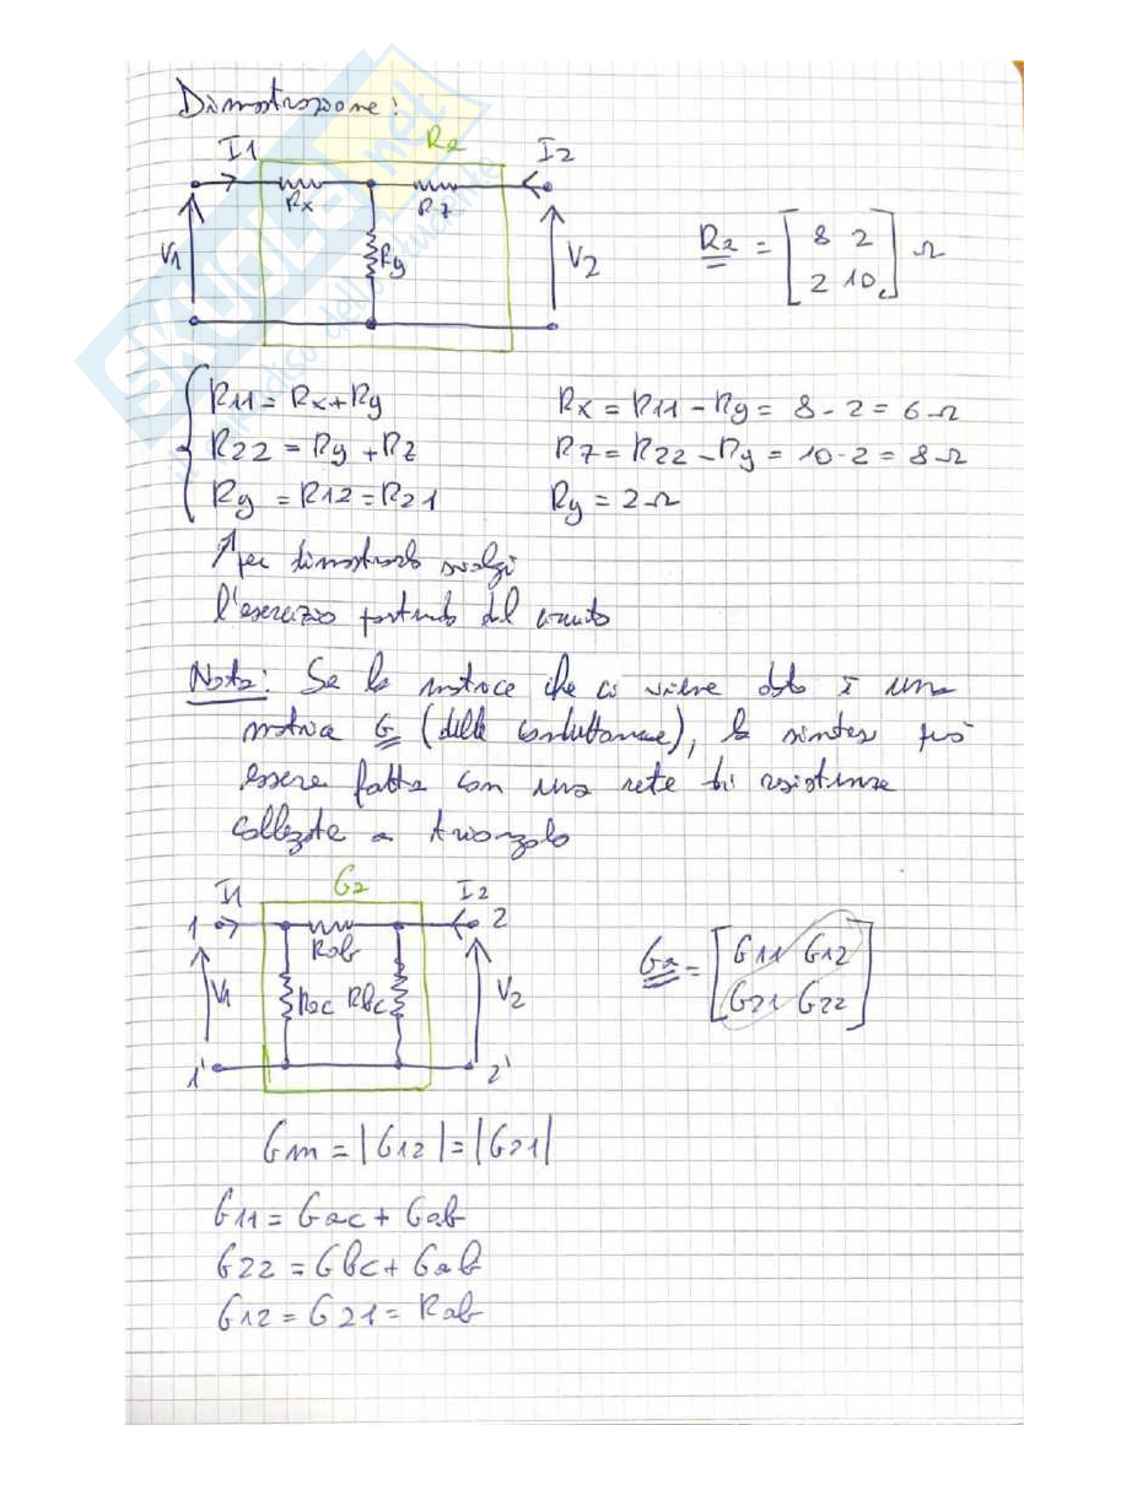 Dimostrazione:
I1 Ra I2
Rx Rz
V1 Ry V2
Ra = [8 2
2 10] Ω
R11 = Rx + Ry
Rx = R11 - Ry = 8 - 2 = 6 Ω
R22 = Ry + Rz
Rz = R22 - Ry = 10 - 2 = 8 Ω
Ry = R12 = R21
Ry = 2 Ω
per dimostrarlo svolgi
l'esercizio partendo dal circuito
Nota: Se la matrice che ci viene data è una
matrice G (delle conduttanze), la sintesi può
essere fatta con una rete di resistenze
collegate a triangolo
I1 Ga I2
1 2
Rab
V1 Rac Rbc V2
1' 2'
Ga = [G11 G12
G21 G22]
Gm = |G12| = |G21|
G11 = Gac + Gab
G22 = Gbc + Gab
G12 = G21 = Rab
SKUOLA.net